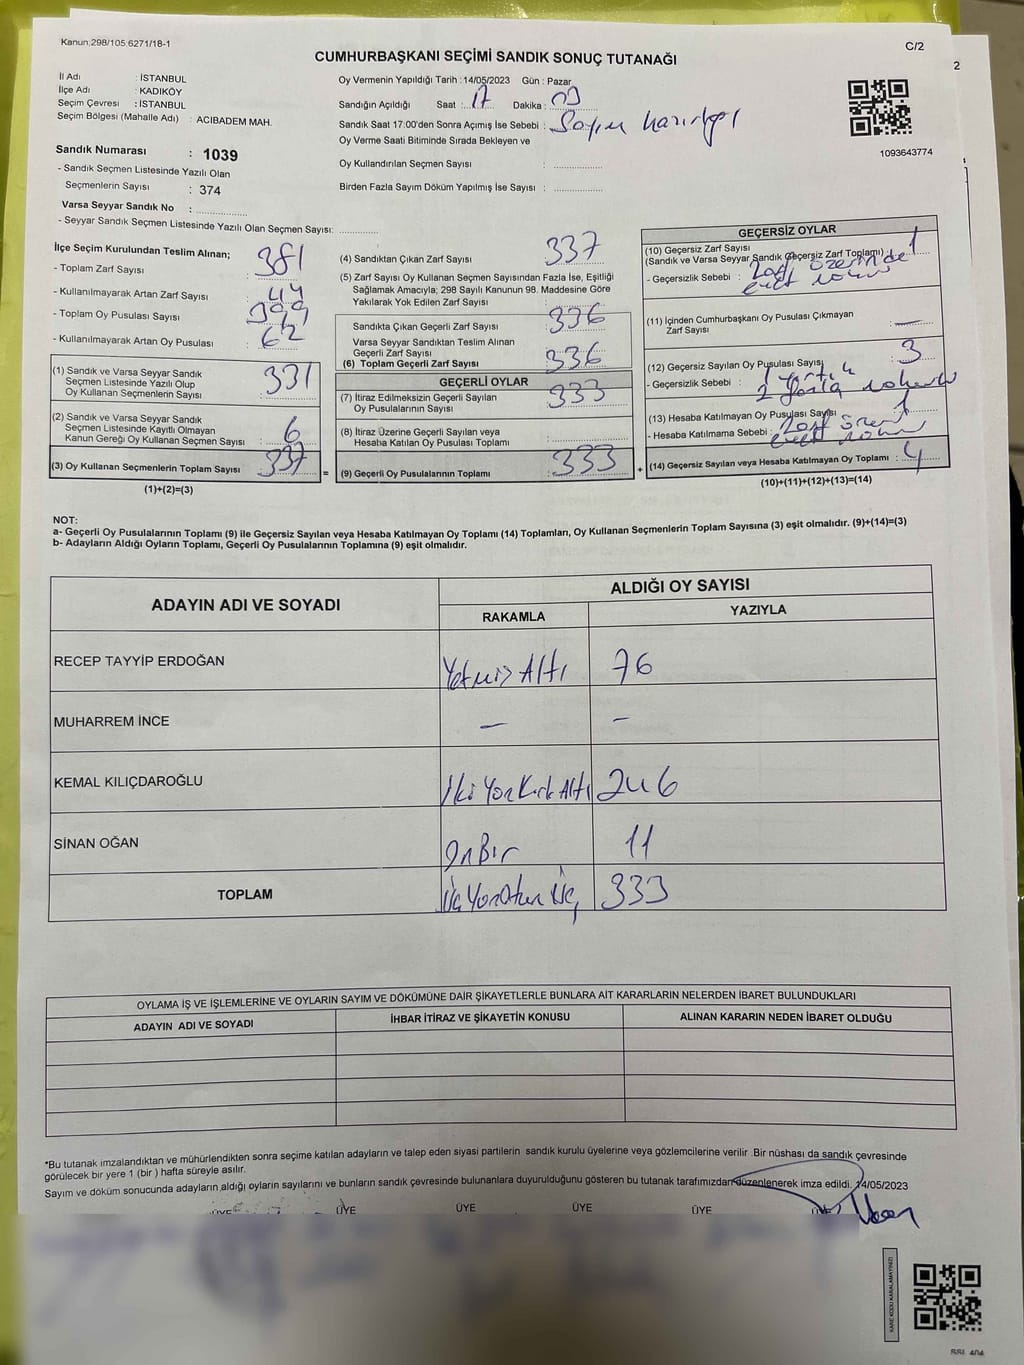 Kanun,298/105,6271/18-1
C/2
2
CUMHURBAŞKANI SEÇİMİ SANDIK SONUÇ TUTANAĞI
İl Adı : İSTANBUL
İlçe Adı : KADIKÖY
Seçim Çevresi : İSTANBUL
Seçim Bölgesi (Mahalle Adı) : ACIBADEM MAH.
Sandık Numarası : 1039
- Sandık Seçmen Listesinde Yazılı Olan
Seçmenlerin Sayısı : 374
Varsa Seyyar Sandık No :
- Seyyar Sandık Seçmen Listesinde Yazılı Olan Seçmen Sayısı:
Oy Vermenin Yapıldığı Tarih : 14/05/2023 Gün : Pazar
Sandığın Açıldığı Saat : 17 Dakika :
Sandık Saat 17:00'den Sonra Açımış İse Sebebi : Sayım
Oy Verme Saati Bitiminde Sırada Bekleyen ve
Oy Kullandırılan Seçmen Sayısı :
Birden Fazla Sayım Döküm Yapılmış İse Sayısı :
1093643774
İlçe Seçim Kurulundan Teslim Alınan;
- Toplam Zarf Sayısı : 381
- Kullanılmayarak Artan Zarf Sayısı : 44
- Toplam Oy Pusulası Sayısı : 399
- Kullanılmayarak Artan Oy Pusulası : 62
(1) Sandık ve Varsa Seyyar Sandık
Seçmen Listesinde Yazılı Olup
Oy Kullanan Seçmenlerin Sayısı : 331
(2) Sandık ve Varsa Seyyar Sandık
Seçmen Listesinde Kayıtlı Olmayan
Kanun Gereği Oy Kullanan Seçmen Sayısı : 6
(3) Oy Kullanan Seçmenlerin Toplam Sayısı : 337
(1)+(2)=(3)
(4) Sandıktan Çıkan Zarf Sayısı : 337
(5) Zarf Sayısı Oy Kullanan Seçmen Sayısından Fazla İse, Eşitliği
Sağlamak Amacıyla; 298 Sayılı Kanunun 98. Maddesine Göre
Yakılarak Yok Edilen Zarf Sayısı :
Sandıkta Çıkan Geçerli Zarf Sayısı : 336
Varsa Seyyar Sandıktan Teslim Alınan
Geçerli Zarf Sayısı :
(6) Toplam Geçerli Zarf Sayısı : 336
GEÇERLİ OYLAR
(7) İtiraz Edilmeksizin Geçerli Sayılan
Oy Pusulalarının Sayısı : 333
(8) İtiraz Üzerine Geçerli Sayılan veya
Hesaba Katılan Oy Pusulası Toplamı :
= (9) Geçerli Oy Pusulalarının Toplamı : 333
GEÇERSİZ OYLAR
(10) Geçersiz Zarf Sayısı
(Sandık ve Varsa Seyyar Sandık Geçersiz Zarf Toplamı) : 1
- Geçersizlik Sebebi : Zarf üzerinde
evet
(11) İçinden Cumhurbaşkanı Oy Pusulası Çıkmayan
Zarf Sayısı : —
(12) Geçersiz Sayılan Oy Pusulası Sayısı : 3
- Geçersizlik Sebebi : 1 Yırtık
2 fazla
(13) Hesaba Katılmayan Oy Pusulası Sayısı : 1
- Hesaba Katılmama Sebebi : Zarf
evet
+ (14) Geçersiz Sayılan veya Hesaba Katılmayan Oy Toplamı : 4
(10)+(11)+(12)+(13)=(14)
NOT:
a- Geçerli Oy Pusulalarının Toplamı (9) ile Geçersiz Sayılan veya Hesaba Katılmayan Oy Toplamı (14) Toplamları, Oy Kullanan Seçmenlerin Toplam Sayısına (3) eşit olmalıdır. (9)+(14)=(3)
b- Adayların Aldığı Oyların Toplamı, Geçerli Oy Pusulalarının Toplamına (9) eşit olmalıdır.
ADAYIN ADI VE SOYADI
ALDIĞI OY SAYISI
RAKAMLA YAZIYLA
RECEP TAYYİP ERDOĞAN Yetmiş Altı 76
MUHARREM İNCE — —
KEMAL KILIÇDAROĞLU İki Yüz Kırk Altı 246
SİNAN OĞAN On Bir 11
TOPLAM Üç Yüz Otuz Üç 333
OYLAMA İŞ VE İŞLEMLERİNE VE OYLARIN SAYIM VE DÖKÜMÜNE DAİR ŞİKAYETLERLE BUNLARA AİT KARARLARIN NELERDEN İBARET BULUNDUKLARI
ADAYIN ADI VE SOYADI İHBAR İTİRAZ VE ŞİKAYETİN KONUSU ALINAN KARARIN NEDEN İBARET OLDUĞU
*Bu tutanak imzalandıktan ve mühürlendikten sonra seçime katılan adayların ve talep eden siyasi partilerin sandık kurulu üyelerine veya gözlemcilerine verilir .Bir nüshası da sandık çevresinde
görülecek bir yere 1 (bir ) hafta süreyle asılır.
Sayım ve döküm sonucunda adayların aldığı oyların sayılarını ve bunların sandık çevresinde bulunanlara duyurulduğunu gösteren bu tutanak tarafımızdan düzenlenerek imza edildi. 14/05/2023
ÜYE ÜYE ÜYE ÜYE ÜYE ÜYE
KARE KODU KARALAMAYINIZ!